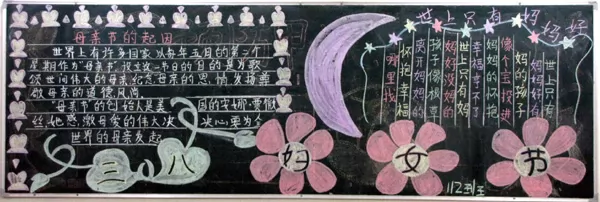 母亲节的起因
世界上有许多国家,以每年五月的第二个
星期作为"母亲节",设立这一节日的目的是为歌
颂世间伟大的母亲,纪念母亲的恩情,发扬孝
敬母亲的道德风尚
"母亲节"的创始人是美国的安娜·
丝,她感激母爱的伟大,决心要为全
世界的母亲发起
世上只有妈妈好
世上只有
妈妈好有
妈的孩子
像个宝投进
妈妈的怀抱
幸福享不了
世上只有妈
妈好没妈的
孩子像根草
离开妈妈的
怀抱幸福
哪里找
三八
妇女节